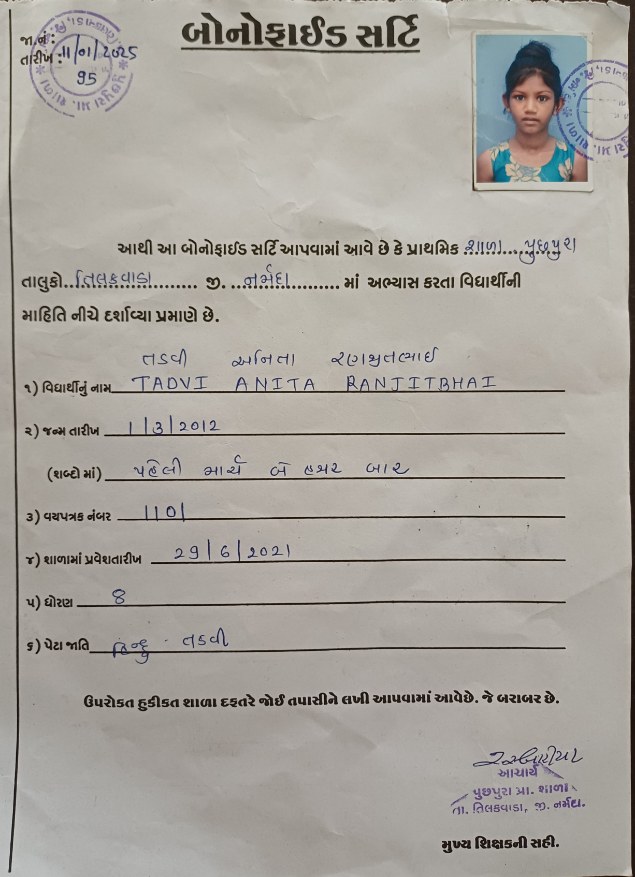 બોનોફાઈડ સર્ટિ
જા.નં:
તારીખ: 11/01/2025
95
આથી આ બોનોફાઈડ સર્ટિ આપવામાં આવે છે કે પ્રાથમિક શાળા પુછપુરા
તાલુકો..તિલકવાડા......... જી. ..નર્મદા............ માં અભ્યાસ કરતા વિદ્યાર્થીની
માહિતિ નીચે દર્શાવ્યા પ્રમાણે છે.
તડવી અનિતા રણજીતભાઈ
૧) વિદ્યાર્થીનું નામ TADVI ANITA RANJITBHAI
૨) જન્મ તારીખ 1/3/2012
(શબ્દો માં) પહેલી માર્ચ બે હજાર બાર
૩) વયપત્રક નંબર 1101
૪) શાળામાં પ્રવેશતારીખ 29/6/2021
૫) ધોરણ 8
૬) પેટા જાતિ હિન્દુ - તડવી
ઉપરોકત હકીકત શાળા દફતરે જોઈ તપાસીને લખી આપવામાં આવેછે. જે બરાબર છે.
આચાર્ય
પુછપુરા પ્રા. શાળા
તા. તિલકવાડા, જી. નર્મદા.
મુખ્ય શિક્ષકની સહી.